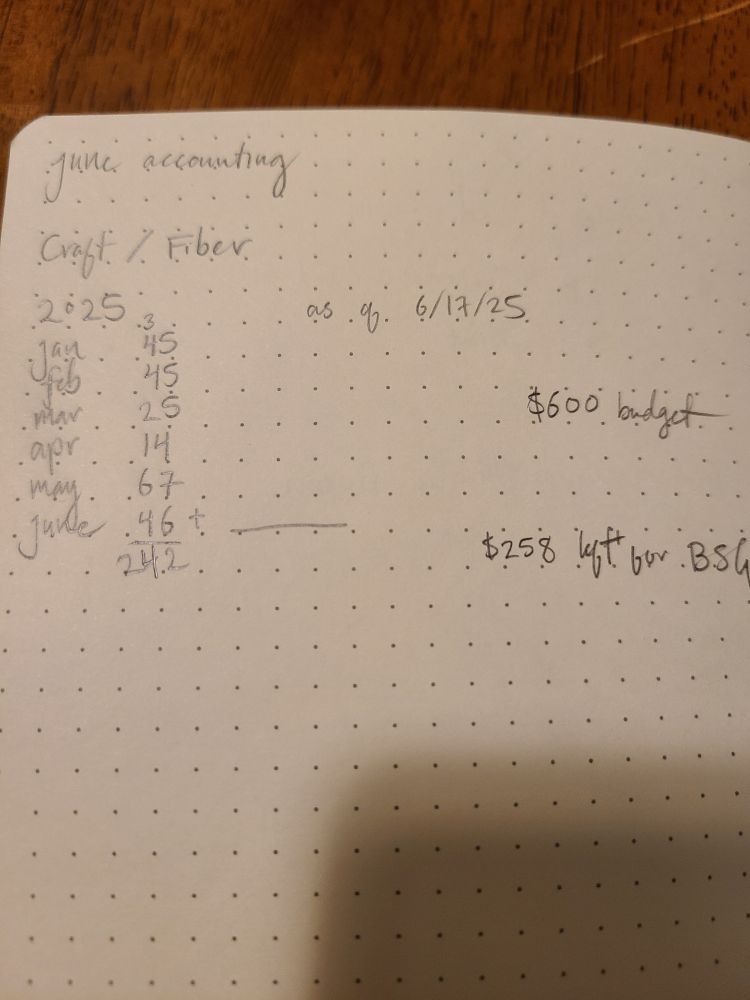 june accounting
Craft / Fiber
2025 as of 6/17/25
3
jan 45
feb 45
mar 25
$600 budget
apr 14
may 67
june 46 +
242
$258 left for BSG